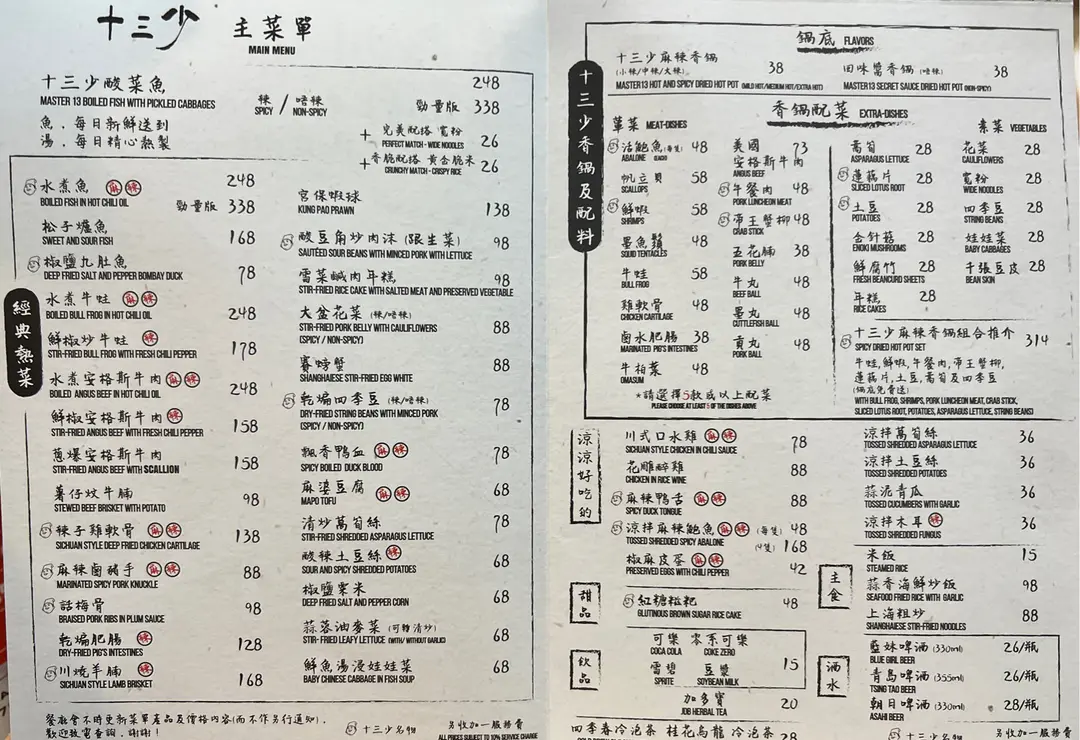 十三少 主菜單
MAIN MENU
十三少酸菜魚 248
MASTER 13 BOILED FISH WITH PICKLED CABBAGES
辣 / 唔辣 勁量版 338
SPICY NON-SPICY
魚，每日新鮮送到
湯，每日精心熱製
+ 完美配搭 寬粉 26
PERFECT MATCH - WIDE NOODLES
+ 香脆配搭 黃金脆米 26
CRUNCHY MATCH - CRISPY RICE
經典熱菜
水煮魚 麻 辣 248
BOILED FISH IN HOT CHILI OIL
勁量版 338
松子爐魚 168
SWEET AND SOUR FISH
椒鹽九肚魚 78
DEEP FRIED SALT AND PEPPER BOMBAY DUCK
水煮牛蛙 麻 辣 248
BOILED BULL FROG IN HOT CHILI OIL
鮮椒炒牛蛙 辣 178
STIR-FRIED BULL FROG WITH FRESH CHILI PEPPER
水煮安格斯牛肉 麻 辣 248
BOILED ANGUS BEEF IN HOT CHILI OIL
鮮椒安格斯牛肉 辣 158
STIR-FRIED ANGUS BEEF WITH FRESH CHILI PEPPER
蔥爆安格斯牛肉 158
STIR-FRIED ANGUS BEEF WITH SCALLION
薯仔炆牛腩 98
STEWED BEEF BRISKET WITH POTATO
辣子雞軟骨 麻 辣 138
SICHUAN STYLE DEEP FRIED CHICKEN CARTILAGE
麻辣鹵豬手 麻 辣 88
MARINATED SPICY PORK KNUCKLE
話梅骨 98
BRAISED PORK RIBS IN PLUM SAUCE
乾煸肥腸 辣 128
DRY-FRIED PIG'S INTESTINES
川燒羊腩 辣 168
SICHUAN STYLE LAMB BRISKET
宮保蝦球 138
KUNG PAO PRAWN
酸豆角炒肉沫 (跟生菜) 98
SAUTÉED SOUR BEANS WITH MINCED PORK WITH LETTUCE
雪菜鹹肉年糕 98
STIR-FRIED RICE CAKE WITH SALTED MEAT AND PRESERVED VEGETABLE
大盆花菜 (辣/唔辣) 88
STIR-FRIED PORK BELLY WITH CAULIFLOWERS
(SPICY / NON-SPICY)
賽螃蟹 88
SHANGHAIESE STIR-FRIED EGG WHITE
乾煸四季豆 (辣/唔辣) 78
DRY-FRIED STRING BEANS WITH MINCED PORK
(SPICY / NON-SPICY)
飄香鴨血 麻 辣 78
SPICY BOILED DUCK BLOOD
麻婆豆腐 麻 辣 68
MAPO TOFU
清炒萵筍絲 78
STIR-FRIED SHREDDED ASPARAGUS LETTUCE
酸辣土豆絲 辣 68
SOUR AND SPICY SHREDDED POTATOES
椒鹽粟米 68
DEEP FRIED SALT AND PEPPER CORN
蒜蓉油麥菜 (可轉清炒) 68
STIR-FRIED LEAFY LETTUCE (WITH/ WITHOUT GARLIC)
鮮魚湯浸娃娃菜 68
BABY CHINESE CABBAGE IN FISH SOUP
餐廳會不時更新菜單產品及價格內容(而不作另行通知)，
歡迎致電查詢，謝謝！
十三少名物
另收加一服務費
ALL PRICES SUBJECT TO 10% SERVICE CHARGE
十三少香鍋及配料
鍋底 FLAVORS
十三少麻辣香鍋 38
(小辣/中辣/大辣)
MASTER 13 HOT AND SPICY DRIED HOT POT (MILD HOT/MEDIUM HOT/EXTRA HOT)
回味醬香鍋 (唔辣) 38
MASTER 13 SECRET SAUCE DRIED HOT POT (NON-SPICY)
香鍋配菜 EXTRA-DISHES
葷菜 MEAT-DISHES
活鮑魚 (每隻) 48
ABALONE (EACH)
帆立貝 58
SCALLOPS
鮮蝦 58
SHRIMPS
墨魚鬚 48
SQUID TENTACLES
牛蛙 58
BULL FROG
雞軟骨 48
CHICKEN CARTILAGE
鹵水肥腸 38
MARINATED PIG'S INTESTINES
牛柏葉 48
OMASUM
美國 73
安格斯牛肉
ANGUS BEEF
午餐肉 48
PORK LUNCHEON MEAT
帝王蟹柳 48
CRAB STICK
五花腩 38
PORK BELLY
牛丸 48
BEEF BALL
墨丸 48
CUTTLEFISH BALL
貢丸 48
PORK BALL
*請選擇5款或以上配菜
PLEASE CHOOSE AT LEAST 5 OF THE DISHES ABOVE
素菜 VEGETABLES
萵筍 28
ASPARAGUS LETTUCE
蓮藕片 28
SLICED LOTUS ROOT
土豆 28
POTATOES
金針菇 28
ENOKI MUSHROOMS
鮮腐竹 28
FRESH BEANCURD SHEETS
年糕 28
RICE CAKES
花菜 28
CAULIFLOWERS
寬粉 28
WIDE NOODLES
四季豆 28
STRING BEANS
娃娃菜 28
BABY CABBAGES
千張豆皮 28
BEAN SKIN
十三少麻辣香鍋組合推介 314
SPICY DRIED HOT POT SET
牛蛙,鮮蝦,午餐肉,帝王蟹柳,
蓮藕片,土豆,萵筍及四季豆
(鍋底免費送)
WITH BULL FROG, SHRIMPS, PORK LUNCHEON MEAT, CRAB STICK,
SLICED LOTUS ROOT, POTATOES, ASPARAGUS LETTUCE, STRING BEANS)
涼涼好吃的
川式口水雞 麻 辣 78
SICHUAN STYLE CHICKEN IN CHILI SAUCE
花雕醉雞 88
CHICKEN IN RICE WINE
麻辣鴨舌 麻 辣 88
SPICY DUCK TONGUE
涼拌麻辣鮑魚 麻 辣 (每隻) 48
TOSSED SHREDDED SPICY ABALONE (4隻) 168
椒麻皮蛋 麻 辣 42
PRESERVED EGGS WITH CHILI PEPPER
涼拌萵筍絲 36
TOSSED SHREDDED ASPARAGUS LETTUCE
涼拌土豆絲 36
TOSSED SHREDDED POTATOES
蒜泥青瓜 36
TOSSED CUCUMBERS WITH GARLIC
涼拌木耳 辣 36
TOSSED SHREDDED FUNGUS
甜品
紅糖糍粑 48
GLUTINOUS BROWN SUGAR RICE CAKE
主食
米飯 15
STEAMED RICE
蒜香海鮮炒飯 98
SEAFOOD FRIED RICE WITH GARLIC
上海粗炒 88
SHANGHAIESE STIR-FRIED NOODLES
飲品
可樂 零系可樂
COCA COLA COKE ZERO
雪碧 豆漿 15
SPRITE SOYBEAN MILK
加多寶 20
JDB HERBAL TEA
四季春冷泡茶 桂花烏龍 冷泡茶 28
酒水
藍妹啤酒 (330ml) 26/瓶
BLUE GIRL BEER
青島啤酒 (355ml) 26/瓶
TSING TAO BEER
朝日啤酒 (330ml) 28/瓶
ASAHI BEER
十三少名物
另收加一服務費